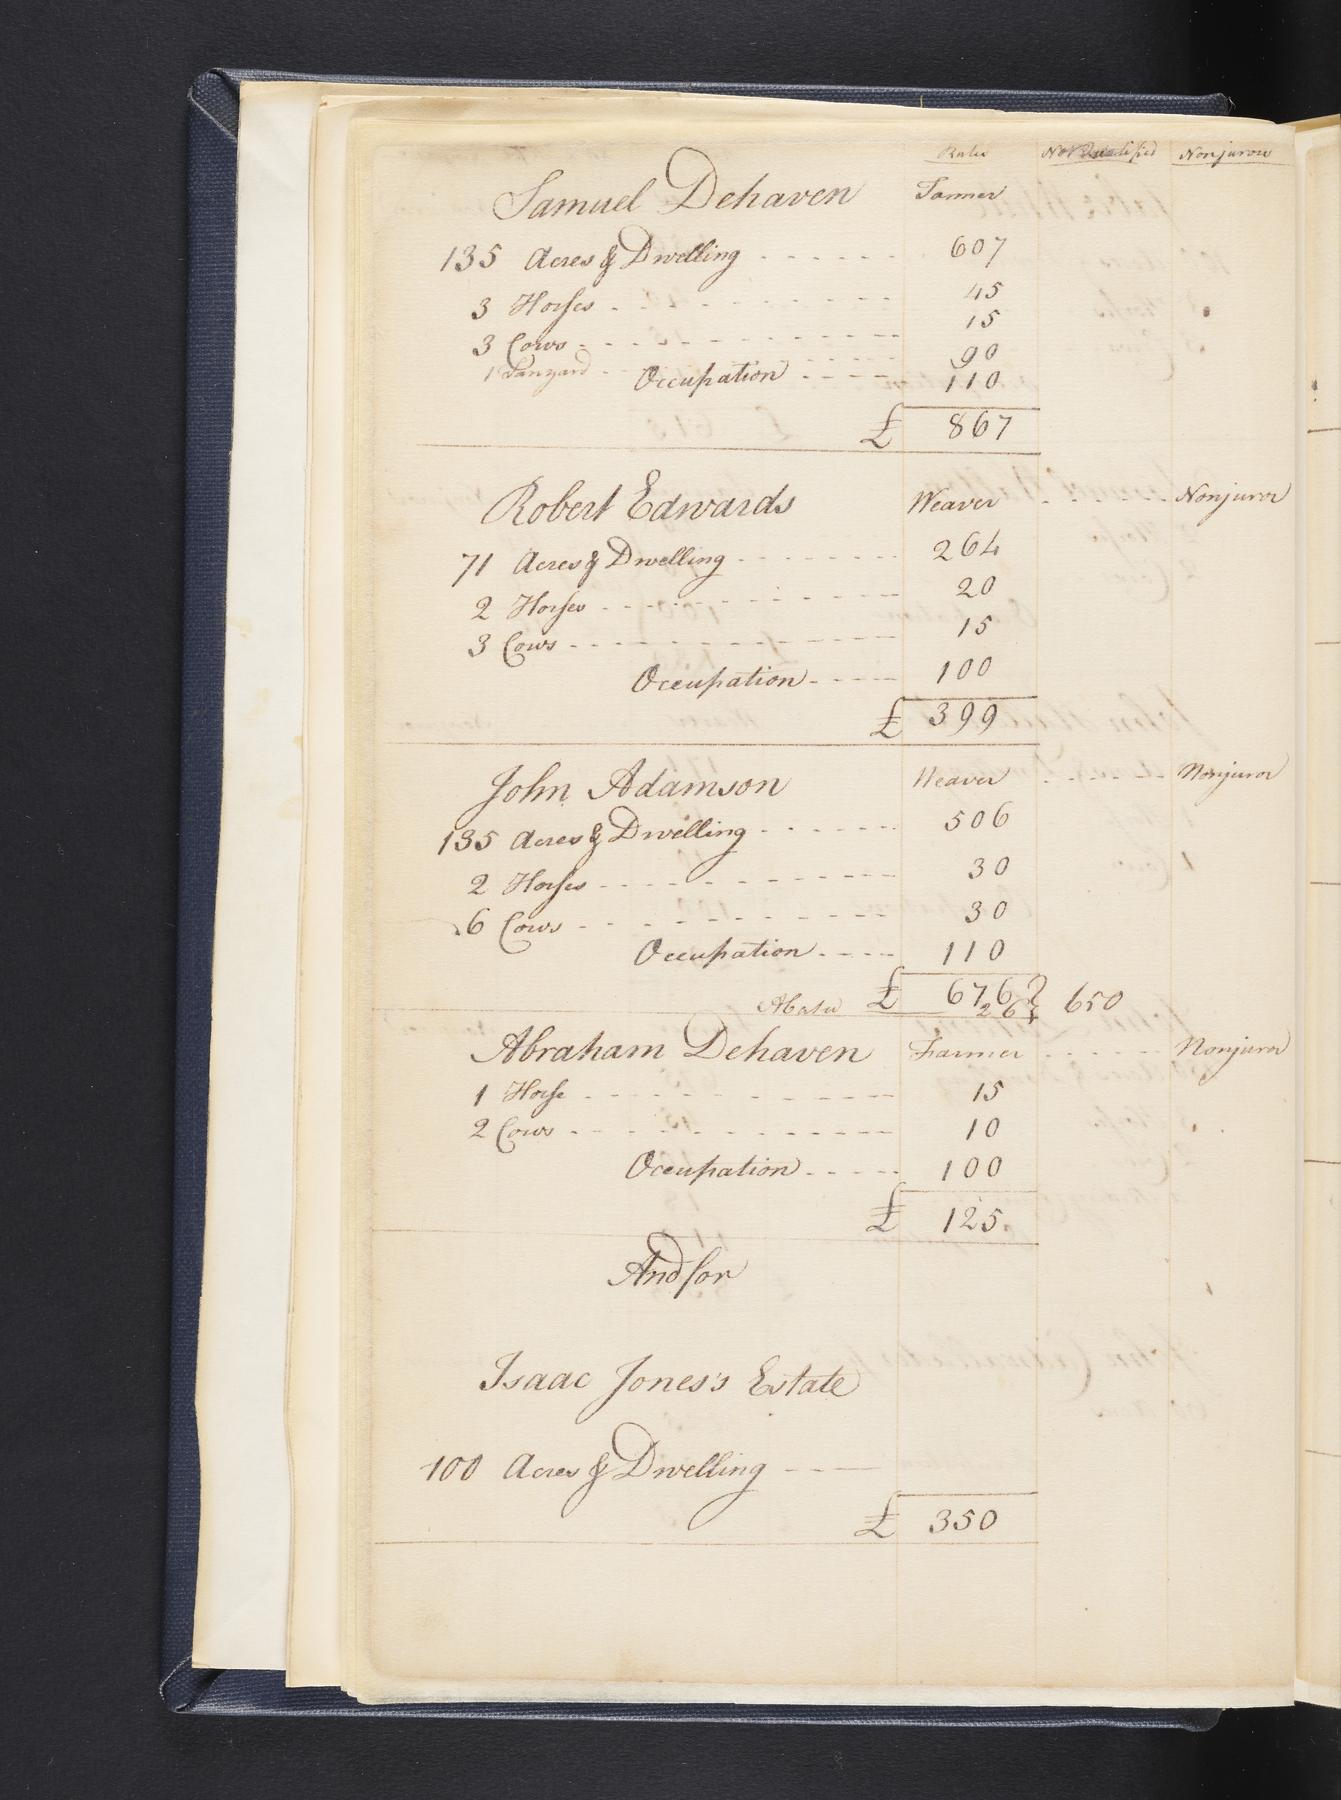 Rates Not Qualified Nonjurors
Samuel Dehaven Tanner
135 Acres & Dwelling 607
3 Horses 45
3 Cows 15
1 Tanyard 90
Occupation 110
£ 867
Robert Edwards Weaver Nonjuror
71 Acres & Dwelling 264
2 Horses 20
3 Cows 15
Occupation 100
£ 399
John Adamson Weaver Nonjuror
135 Acres & Dwelling 506
2 Horses 30
6 Cows 30
Occupation 110
£ 676 } 650
Abate 26
Abraham Dehaven Farmer Nonjuror
1 Horse 15
2 Cows 10
Occupation 100
£ 125
And for
Isaac Jones's Estate
100 Acres & Dwelling
£ 350